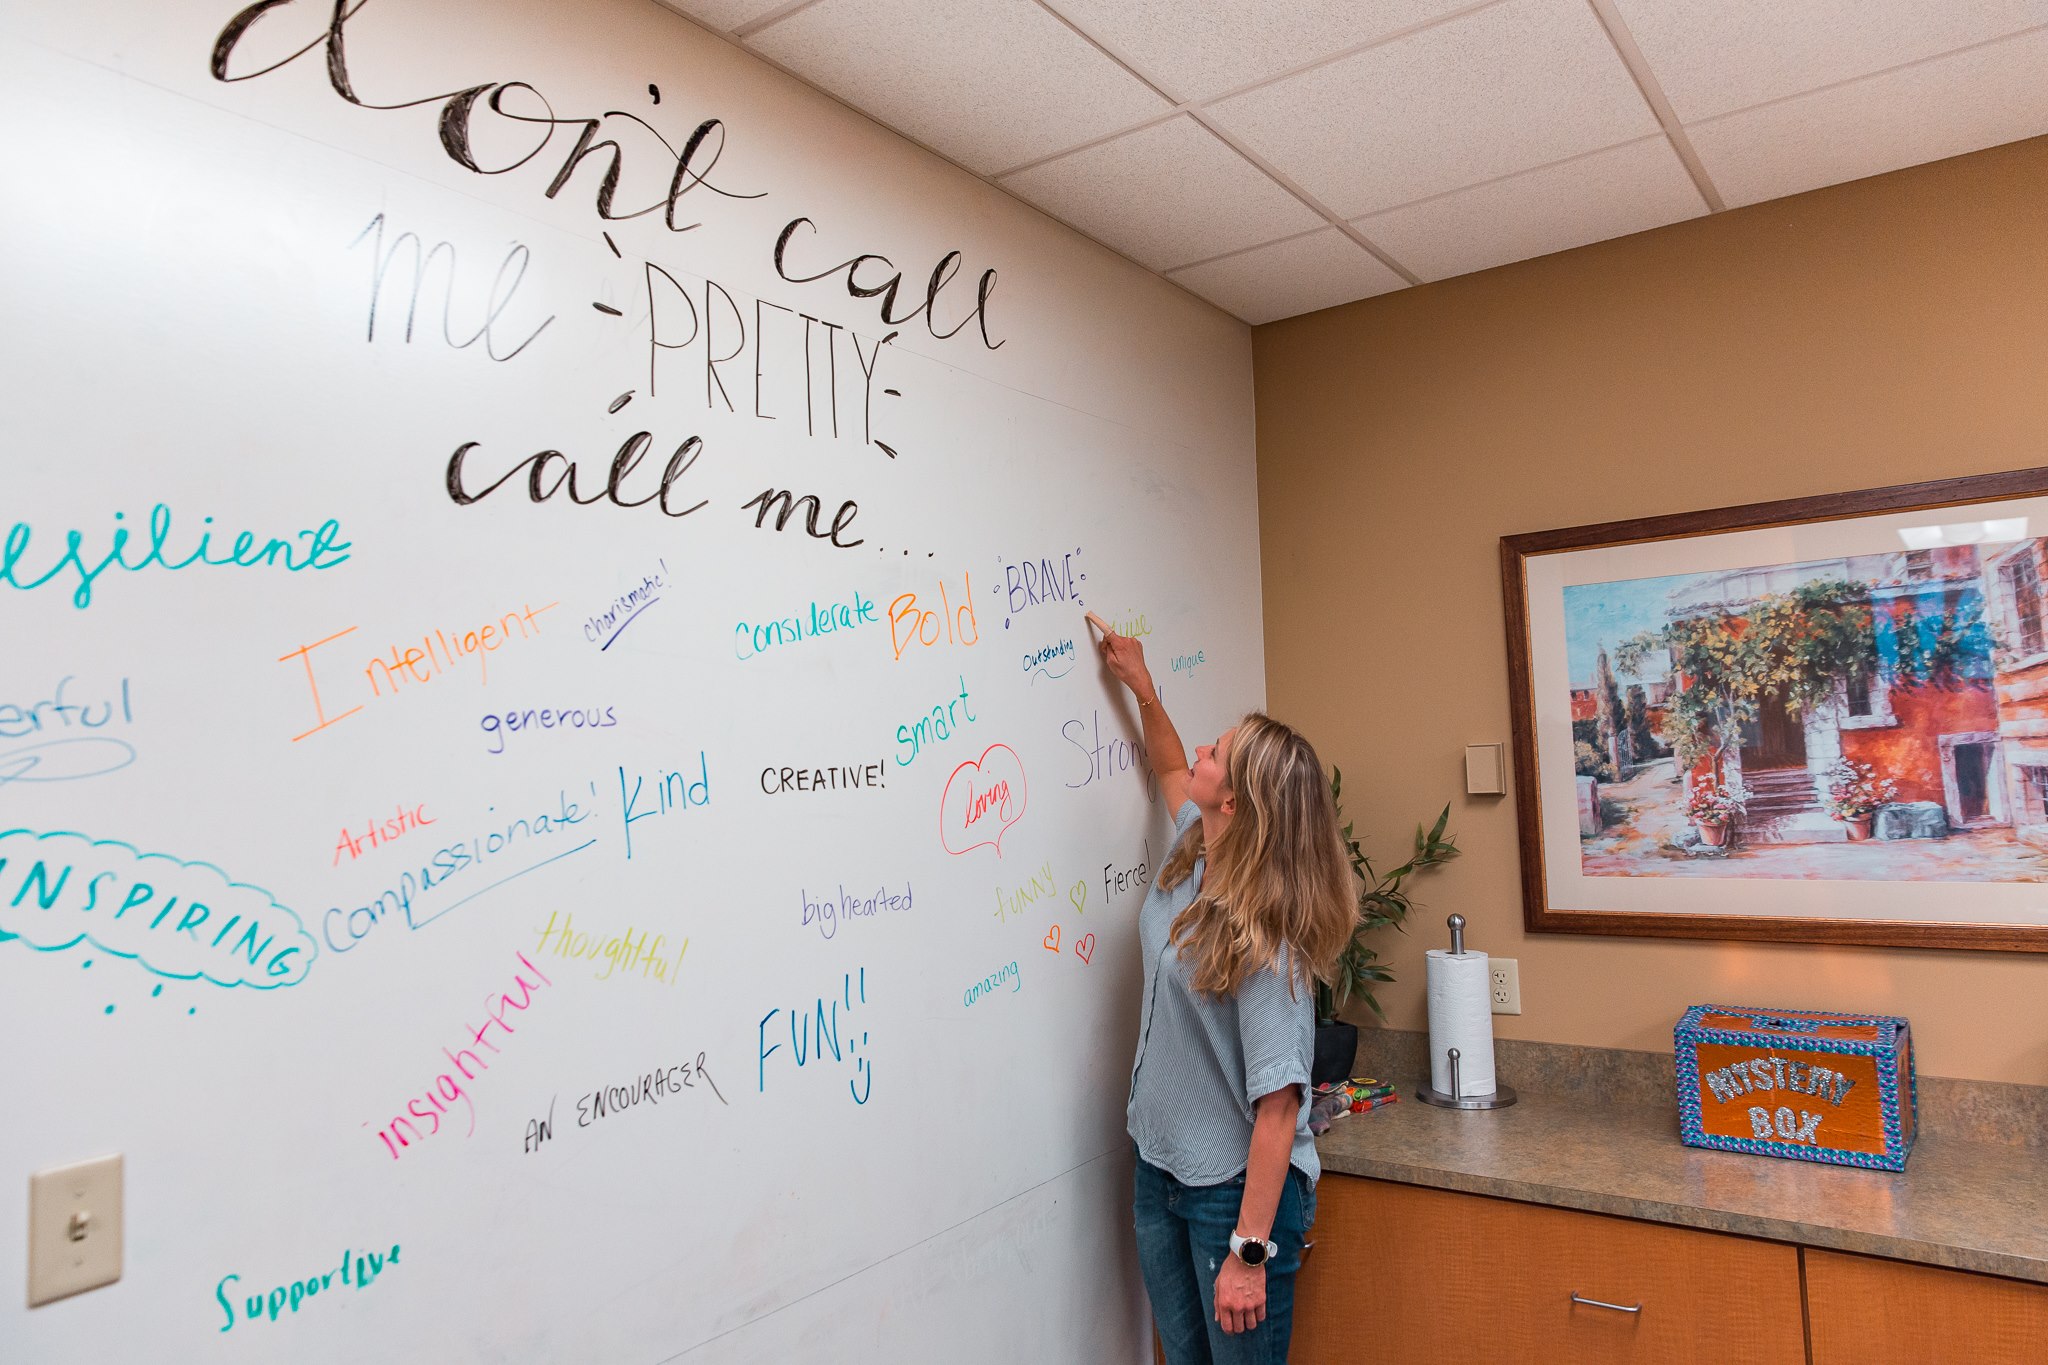 don't call
me PRETTY
call me...
esilient
Intelligent
charismatic!
Considerate
Bold
BRAVE
wise
Outstanding
unique
erful
generous
smart
Strong
Kind
CREATIVE!
loving
Artistic
compassionate!
INSPIRING
thoughtful
bighearted
funny
Fierce!
amazing
insightful
AN ENCOURAGER
FUN!!
Supportive
MYSTERY
BOX